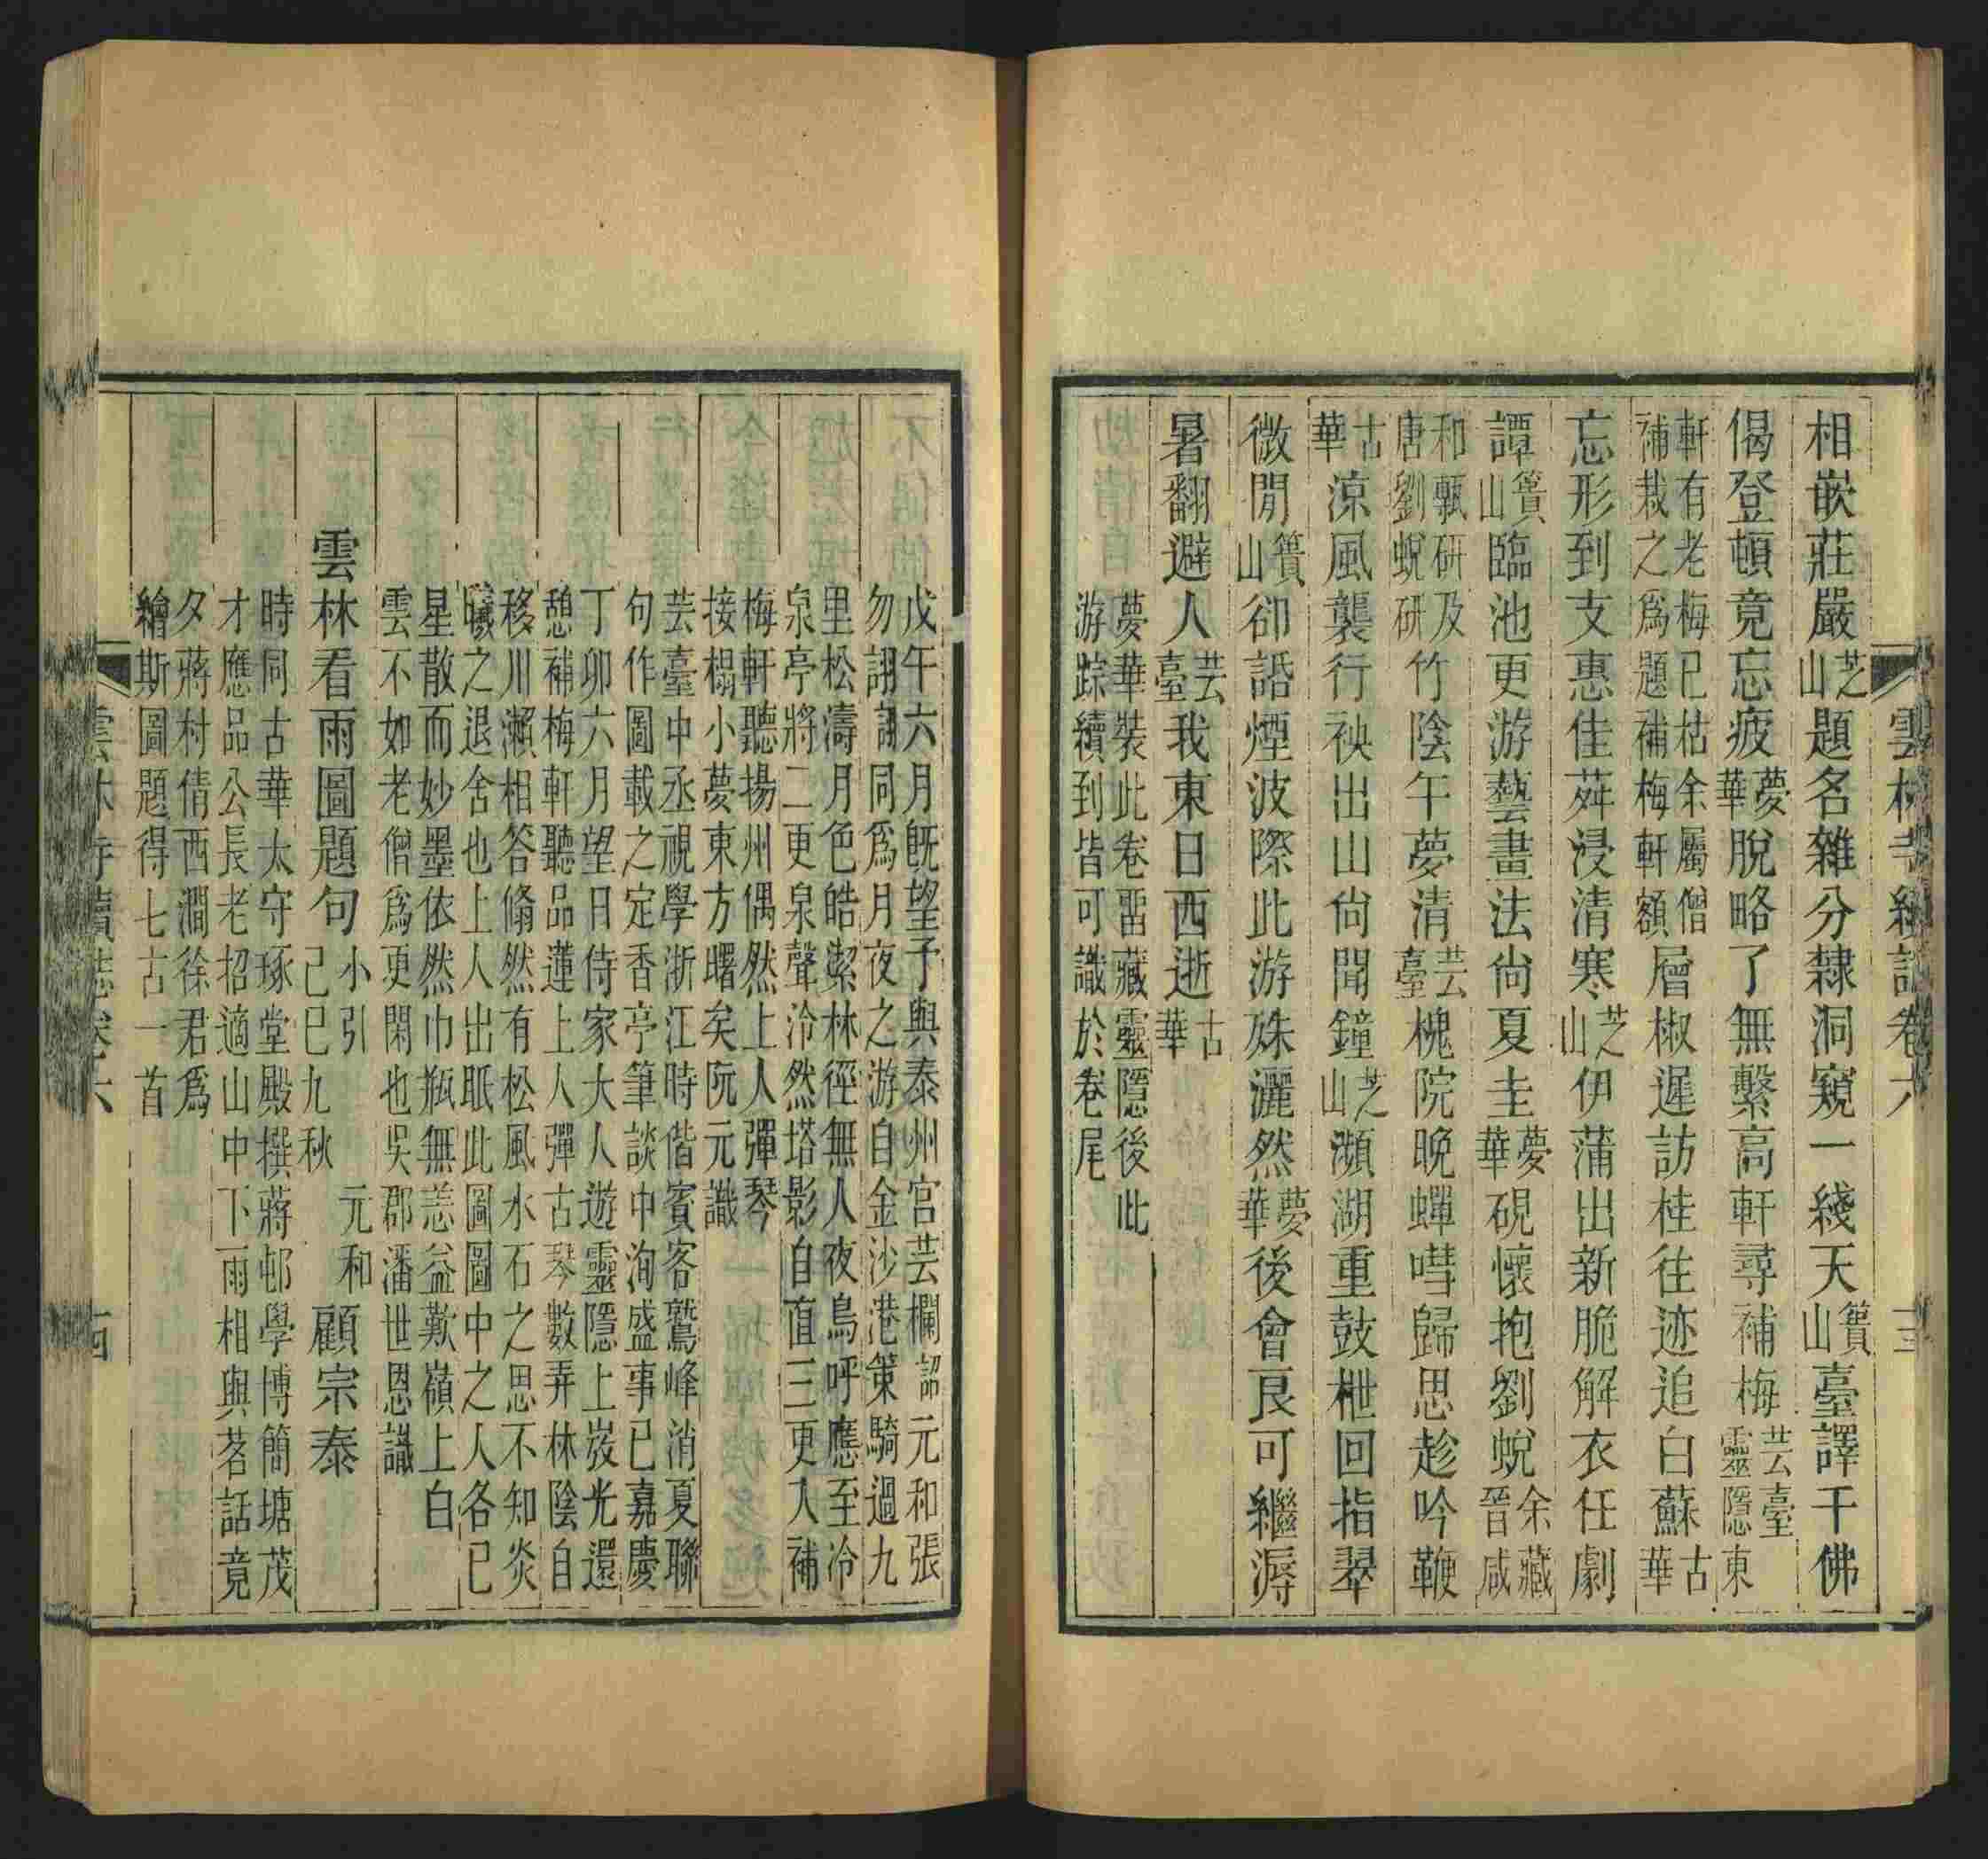 相嵌莊嚴芝山題名雜分隸洞窺一綫天簣山臺譯千佛
偈登頓竟忘疲夢華脫略了無繫高軒尋補梅芸臺靈隱東
軒有老梅已枯余屬僧補栽之爲題補梅軒額層椒遲訪桂往迹追白蘇古華
忘形到支惠佳荈浸清寒芝山伊蒲出新脆解衣任劇
譚簣山臨池更游藝畫法尙夏圭夢華硯懷抱劉蛻余藏晉咸
和甎研及唐劉蛻研竹陰午夢清芸臺槐院晚蟬嘒歸思趁吟鞭
古華涼風襲行袂出山尙聞鐘芝山瀕湖重鼓枻回指翠
微閒簣山卻誥煙波際此游殊灑然夢華後會良可繼溽
暑翻避人芸臺我東日西逝古華
夢華裝此卷畱藏靈隱後此
游踪續到皆可識於卷尾
雲林寺續誌卷六
三
戊午六月既望予與泰州宮芸欄詔元和張
勿詡詡同爲月夜之游自金沙港策騎過九
里松濤月色皓潔林徑無人夜鳥呼應至冷
泉亭將二更泉聲泠然塔影自直三更入補
梅軒聽揚州偶然上人彈琴
接榻小夢東方曙矣阮元識
芸臺中丞視學浙江時偕賓客鷲峰消夏聯
句作圖載之定香亭筆談中洵盛事已嘉慶
丁卯六月望日侍家大人遊靈隱上㟼光還
憩補梅軒聽品蓮上人彈古琴數弄林陰自
移川瀨相答翛然有松風水石之思不知炎
曦之退舍也上人出眎此圖圖中之人各已
星散而妙墨依然巾瓶無恙益歎嶺上白
雲不如老僧爲更閑也吳郡潘世恩識
雲林看雨圖題句小引己巳九秋　元和　顧宗泰
時同古華太守琢堂殿撰蔣邨學博簡塘茂
才應品公長老招適山中下雨相與茗話竟
夕蔣村倩西澗徐君爲
繪斯圖題得七古一首
雲林寺續誌卷六
西